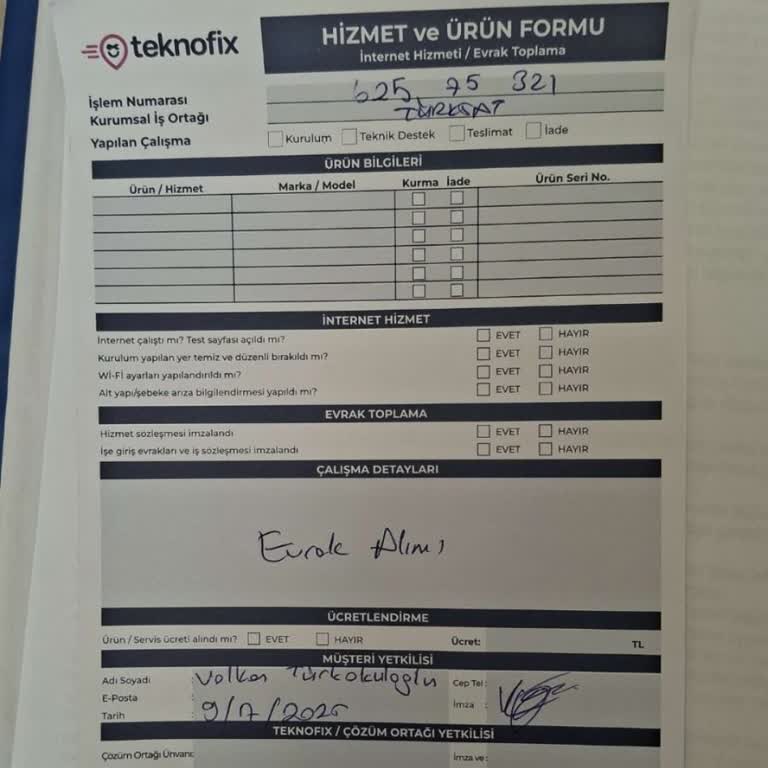 teknofix
HİZMET ve ÜRÜN FORMU
İnternet Hizmeti / Evrak Toplama
İşlem Numarası 625 75 321
Kurumsal İş Ortağı TÜRKSAT
Yapılan Çalışma Kurulum Teknik Destek Teslimat İade
ÜRÜN BİLGİLERİ
Ürün / Hizmet Marka / Model Kurma İade Ürün Seri No.
İNTERNET HİZMET
İnternet çalıştı mı? Test sayfası açıldı mı? EVET HAYIR
Kurulum yapılan yer temiz ve düzenli bırakıldı mı? EVET HAYIR
Wi-Fi ayarları yapılandırıldı mı? EVET HAYIR
Alt yapı/şebeke arıza bilgilendirmesi yapıldı mı? EVET HAYIR
EVRAK TOPLAMA
Hizmet sözleşmesi imzalandı EVET HAYIR
İşe giriş evrakları ve iş sözleşmesi imzalandı EVET HAYIR
ÇALIŞMA DETAYLARI
Evrak Alımı
ÜCRETLENDİRME
Ürün / Servis ücreti alındı mı? EVET HAYIR Ücret: TL
MÜŞTERİ YETKİLİSİ
Adı Soyadı : Volkan Türkokuloğlu Cep Tel :
E-Posta :
Tarih : 9/7/2025 İmza :
TEKNOFIX / ÇÖZÜM ORTAĞI YETKİLİSİ
Çözüm Ortağı Ünvanı: İmza ve :